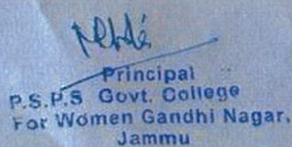 Principal
P.S.P.S Govt. College
For Women Gandhi Nagar,
Jammu